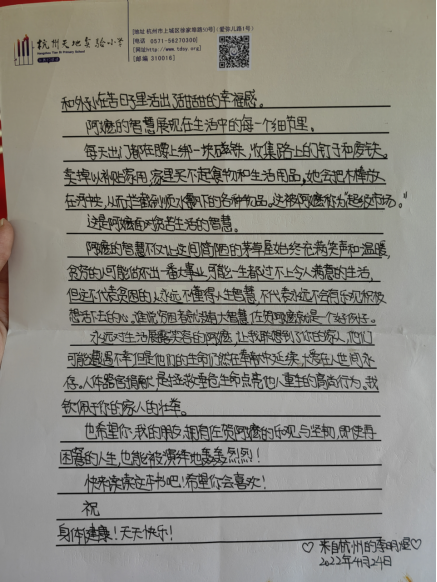 杭州天地实验小学
Hangzhou Tian Di Primary School
[地址 杭州市上城区徐家埠路10号](爱弥儿路1号)
[电话 0571-56270300]
[网址http://www.tdsy.org]
[邮编 310016]
和外孙在苦日子里活出了甜甜的幸福感。
阿嬷的智慧展现在生活中的每一个细节里。
每天出门都在腰上绑一块磁铁，收集路上的钉子和废铁，
卖掉以补贴家用。家里买不起食物和生活用品，她会把木棒放
在河中，从而拦截到顺水漂下的各种物品。这被阿嬷称为“超级市场。”
这是阿嬷面对贫苦生活的智慧。
阿嬷的智慧不仅让这间简陋的茅草屋始终充满笑声和温暖，
贫穷的人可能做不出一番大事业，可能一生都过不上令人满意的生活，
但这不代表贫困的人永远不懂得人生智慧，不代表永远不会有乐观积极
想活下去的心。谁说贫困者就没有大智慧，佐贺阿嬷就是一个好例子。
永远对生活展露笑容的阿嬷，让我联想到了你的家人，他们
可能遭遇不幸但是他们的生命仍然在奉献中延续，大爱在人世间永
存。人体器官捐献，是拯救垂危生命点亮他人重生的高尚行为。我
钦佩于你的家人的壮举。
也希望你，我的朋友，拥有佐贺阿嬷的乐观与坚韧，即使再
困窘的人生，也能被演绎地轰轰烈烈！
快来读读这本书吧！希望你会喜欢！
祝
身体健康！天天快乐！
♡来自杭州的李明煜♡
2022年4月24日